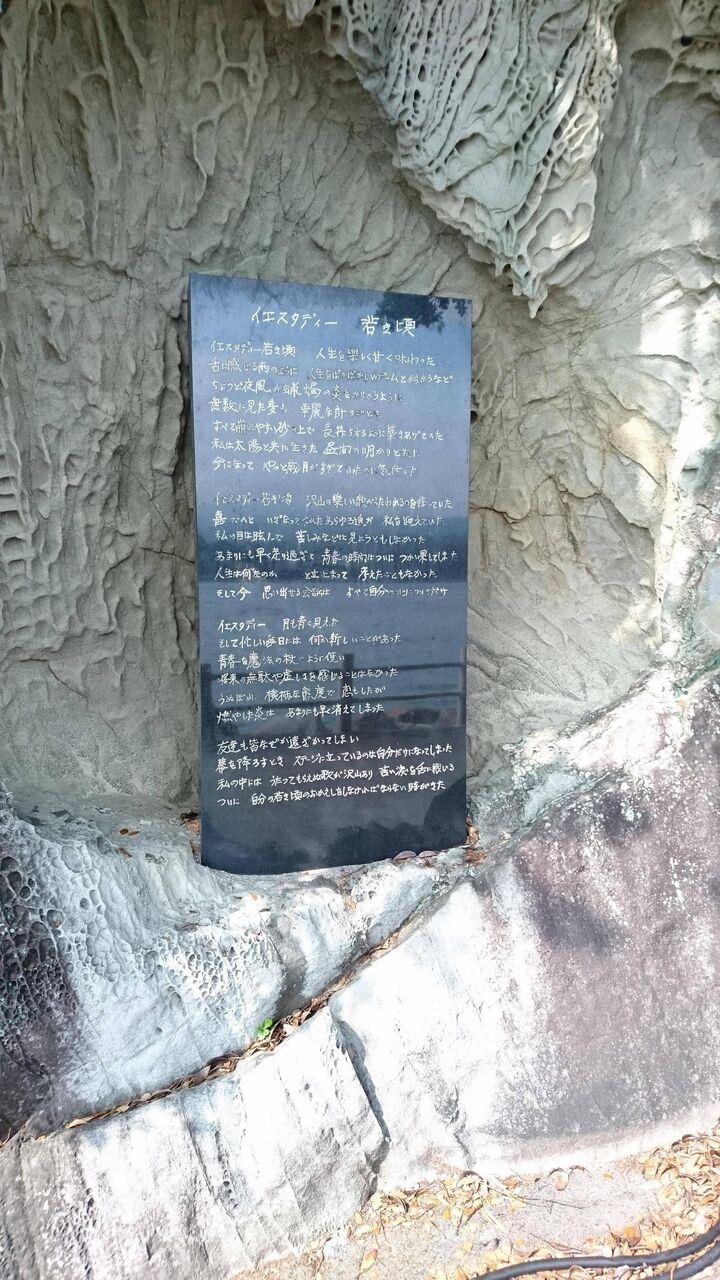 イエスタディー 若き頃
イエスタディー若き頃 人生を楽しく甘く味わった
舌に感じる雨のように 人生をばかばかしいゲームとからかうなど
ちょうど夜風が蝋燭の炎をからかうように
無数に見た夢! 華麗な計りごとも
すべて崩れやすい砂の上で 長持ちするように築きあげていた
私は太陽と共に生きた 昼間の明かりと共に
今になって やっと歳月がすぎていたのに気付いた
イエスタディー若き頃 沢山の楽しい歌がうたわれるのを待っていた
喜びへと いざなってくれたあらゆる道が 私を迎えていた
私の目は眩んで 苦しみなどは見ようともしなかった
あまりにも早く走り過ぎて 青春の時間はついに つかい果してしまった
人生は何なのか と立止まって 考えたこともなかった
そして今 思い出せる会話は すべて自分の については だけ
イエスタディー 月も青く見えた
そして忙しい毎日には 何か新しいことがあった
青春を魔法の杖のように使い
将来の無駄や虚しさを感じることはなかった
うぬぼれ 横柄な態度で 恋もしたが
燃やした炎は あまりにも早く消えてしまった
友達も皆なぜか遠ざかってしまい
幕を降ろすとき ステージに立っているのは自分だけになってしまった
私の中には うたってもらえぬ歌が沢山あり 苦い涙を舌に感じる
ついに 自分の若き頃のおかえしをしなければならない時がきた